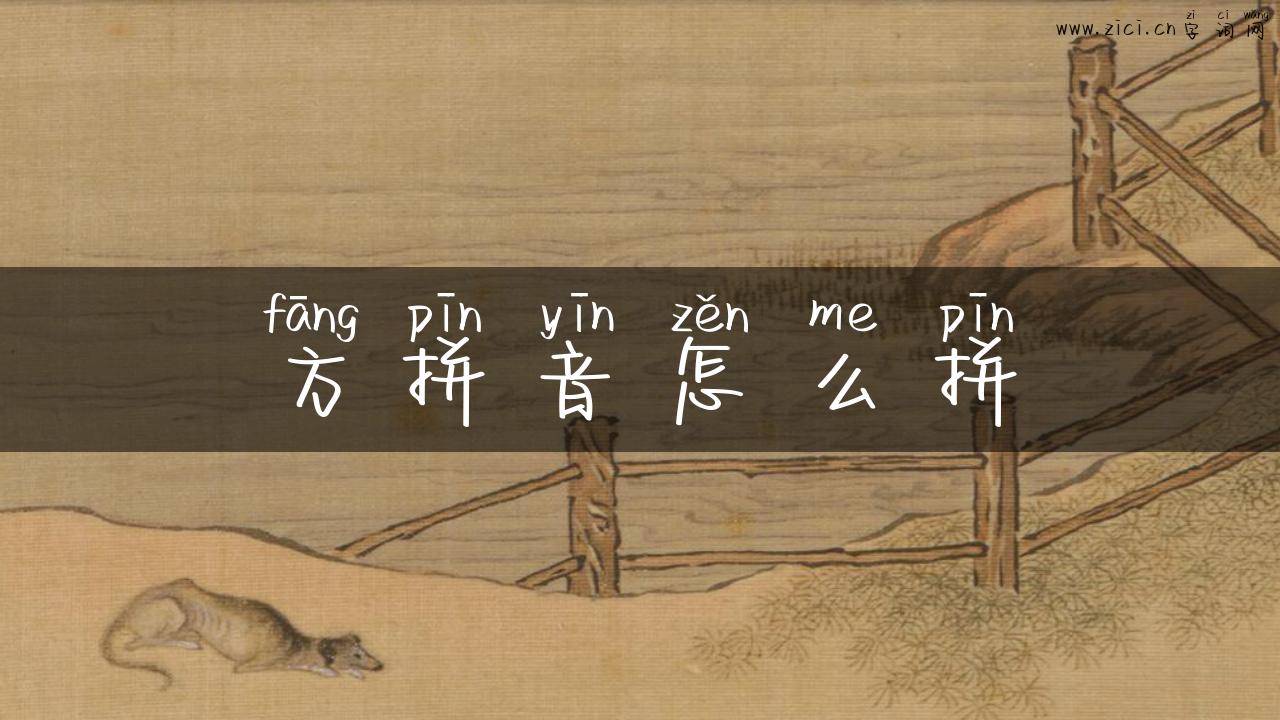 zi ci wang
www.zici.cn 字词网
fāng pīn yīn zěn me pīn
方拼音怎么拼